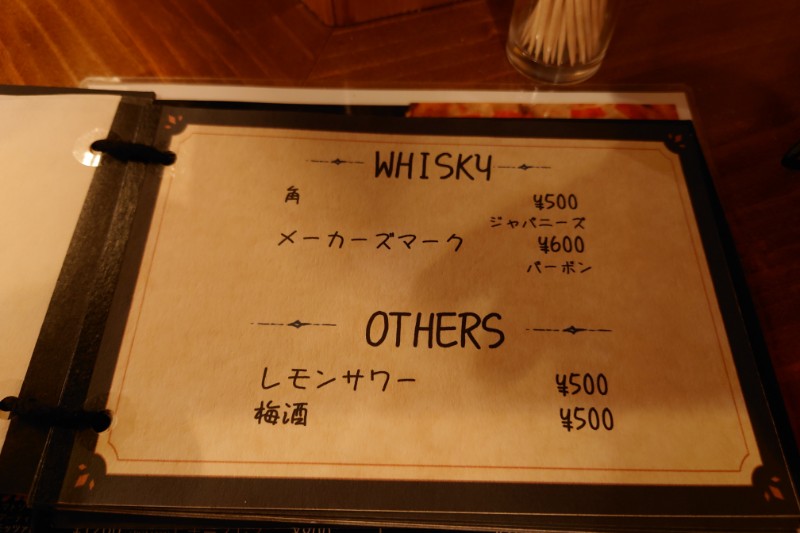 WHISKY
角 ¥500
ジャパニーズ
メーカーズマーク ¥600
バーボン
OTHERS
レモンサワー ¥500
梅酒 ¥500